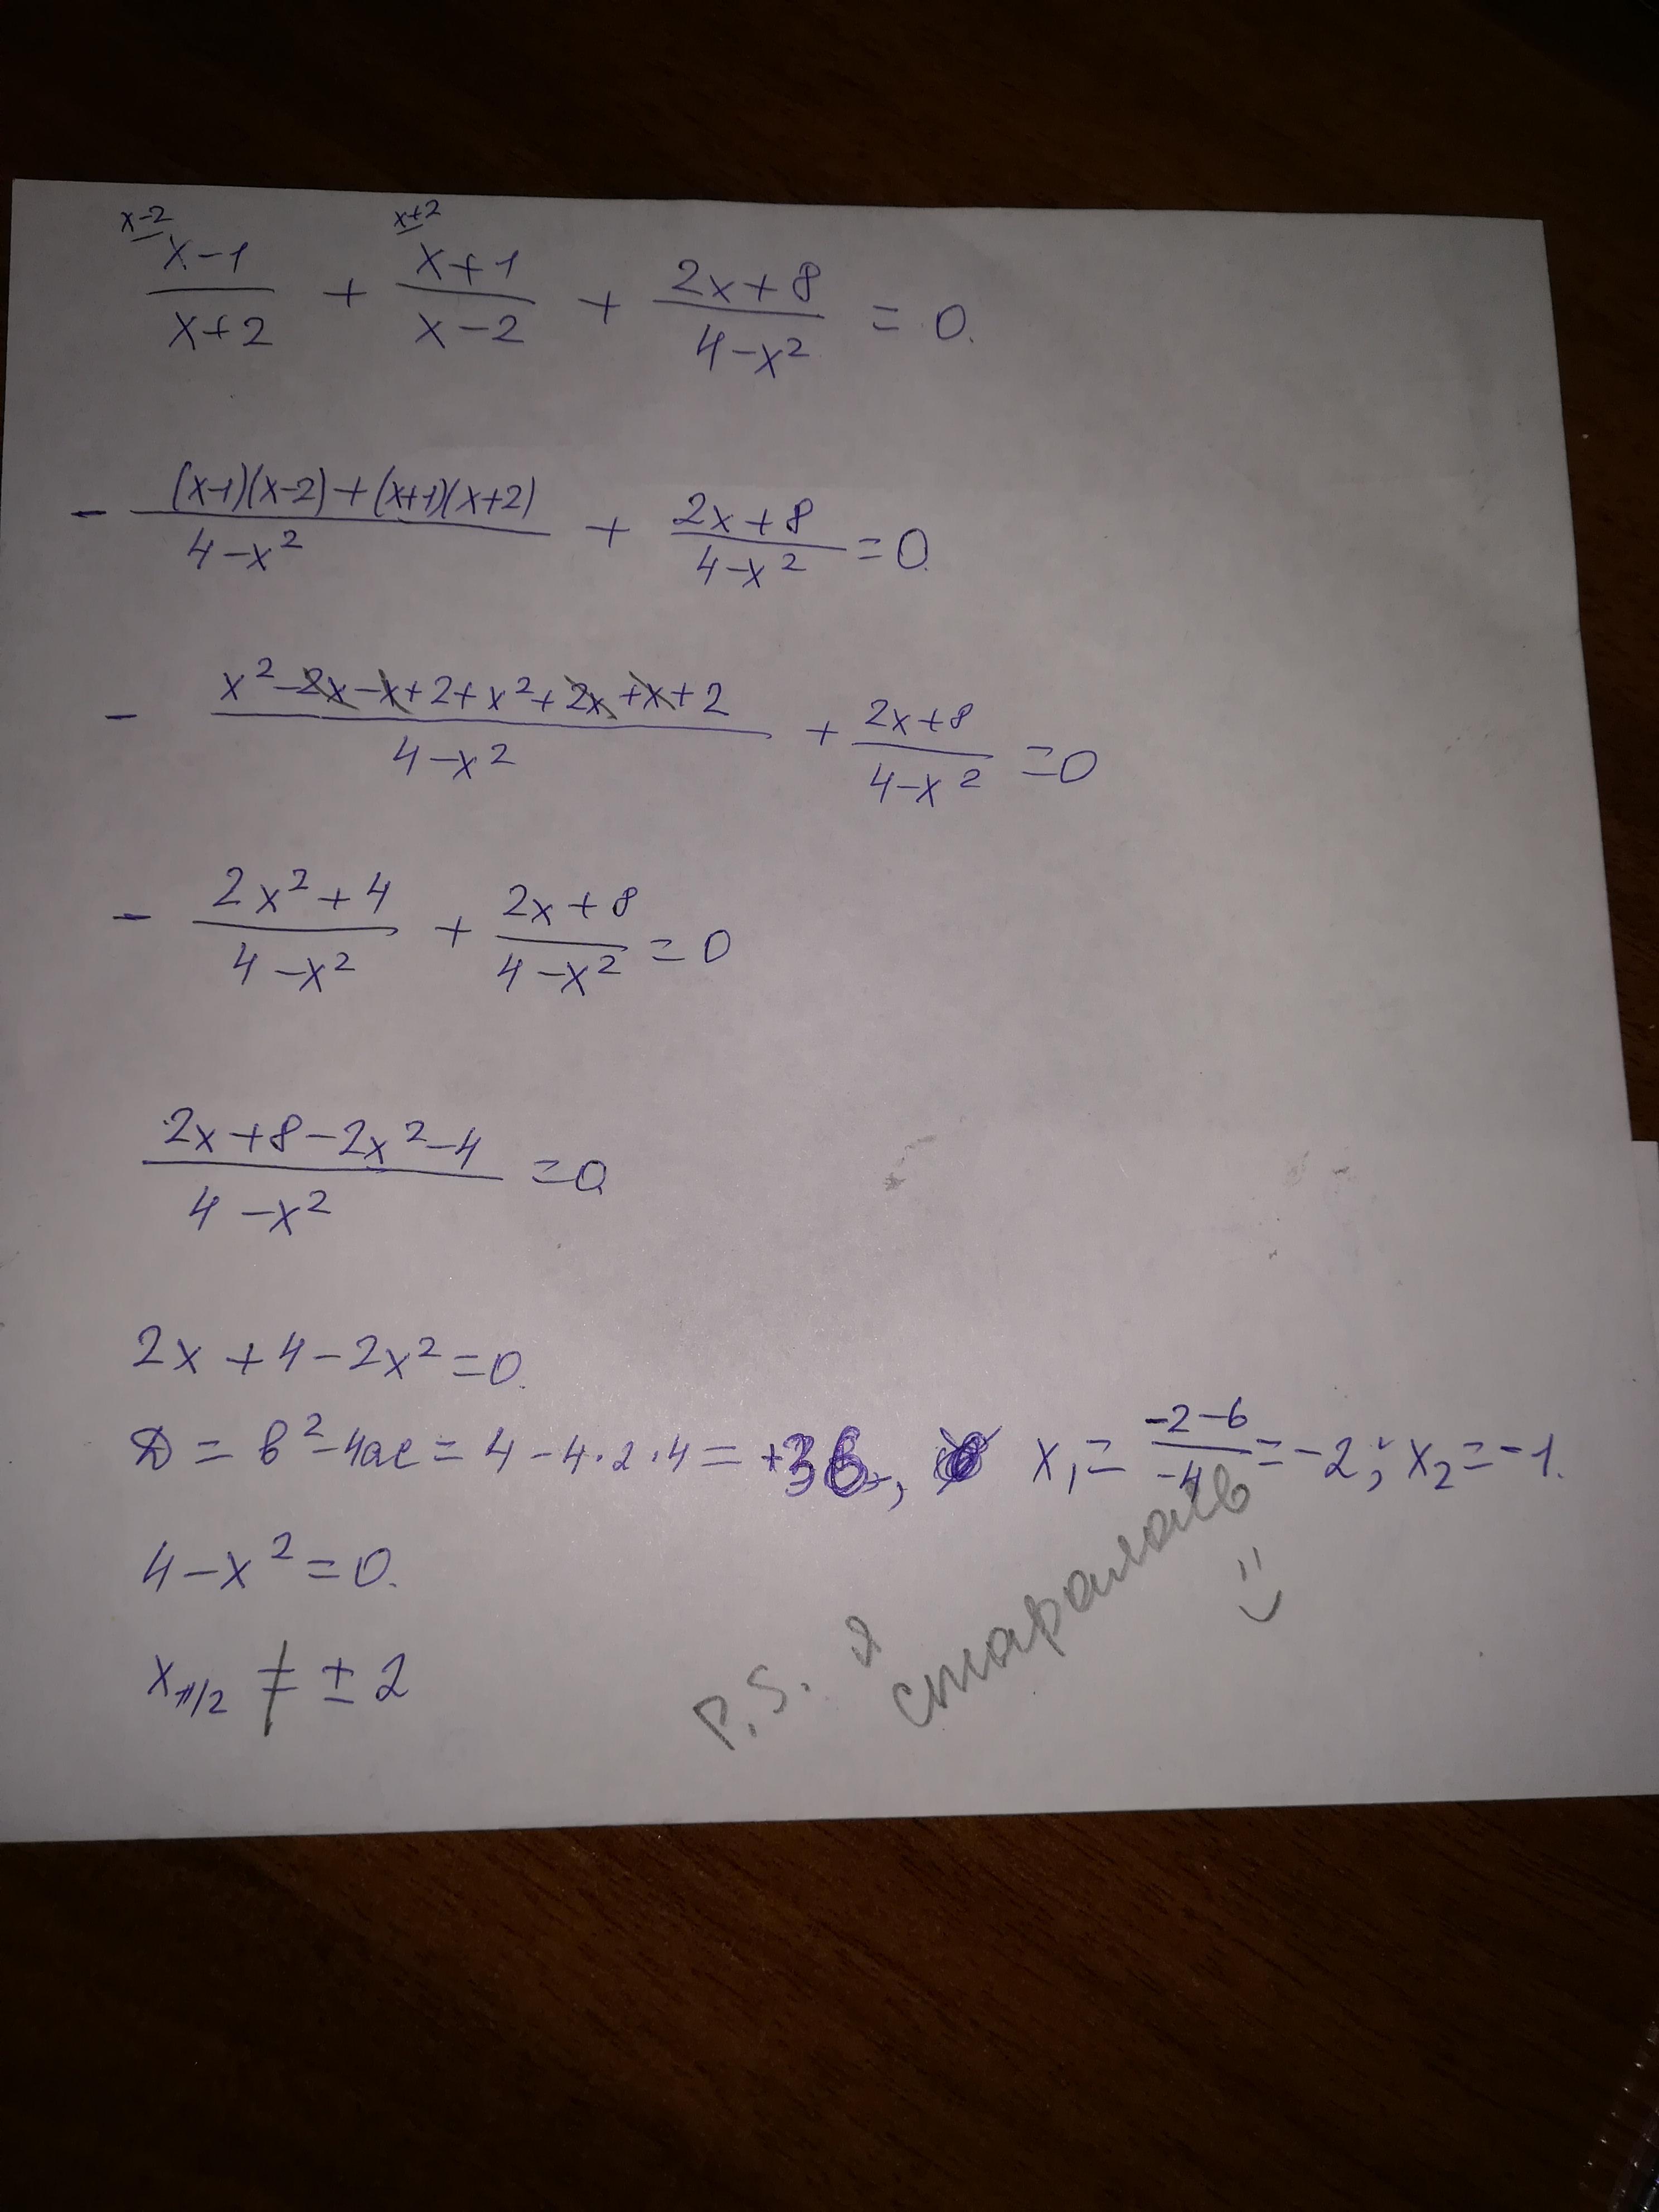 x-2 x+2
x-1/x+2 + x+1/x-2 + 2x+8/4-x² = 0.
- (x-1)(x-2)+(x+1)(x+2)/4-x² + 2x+8/4-x² = 0.
- x²-2x-x+2+x²+2x+x+2/4-x² + 2x+8/4-x² = 0
- 2x²+4/4-x² + 2x+8/4-x² = 0
2x+8-2x²-4/4-x² = 0
2x+4-2x²=0.
D = b²-4ac = 4-4·2·4 = +36, x₁ = -2-6/-4 = -2; x₂ = -1.
4-x²=0.
x₁/₂ ≠ ±2
P.S. Я
старалась